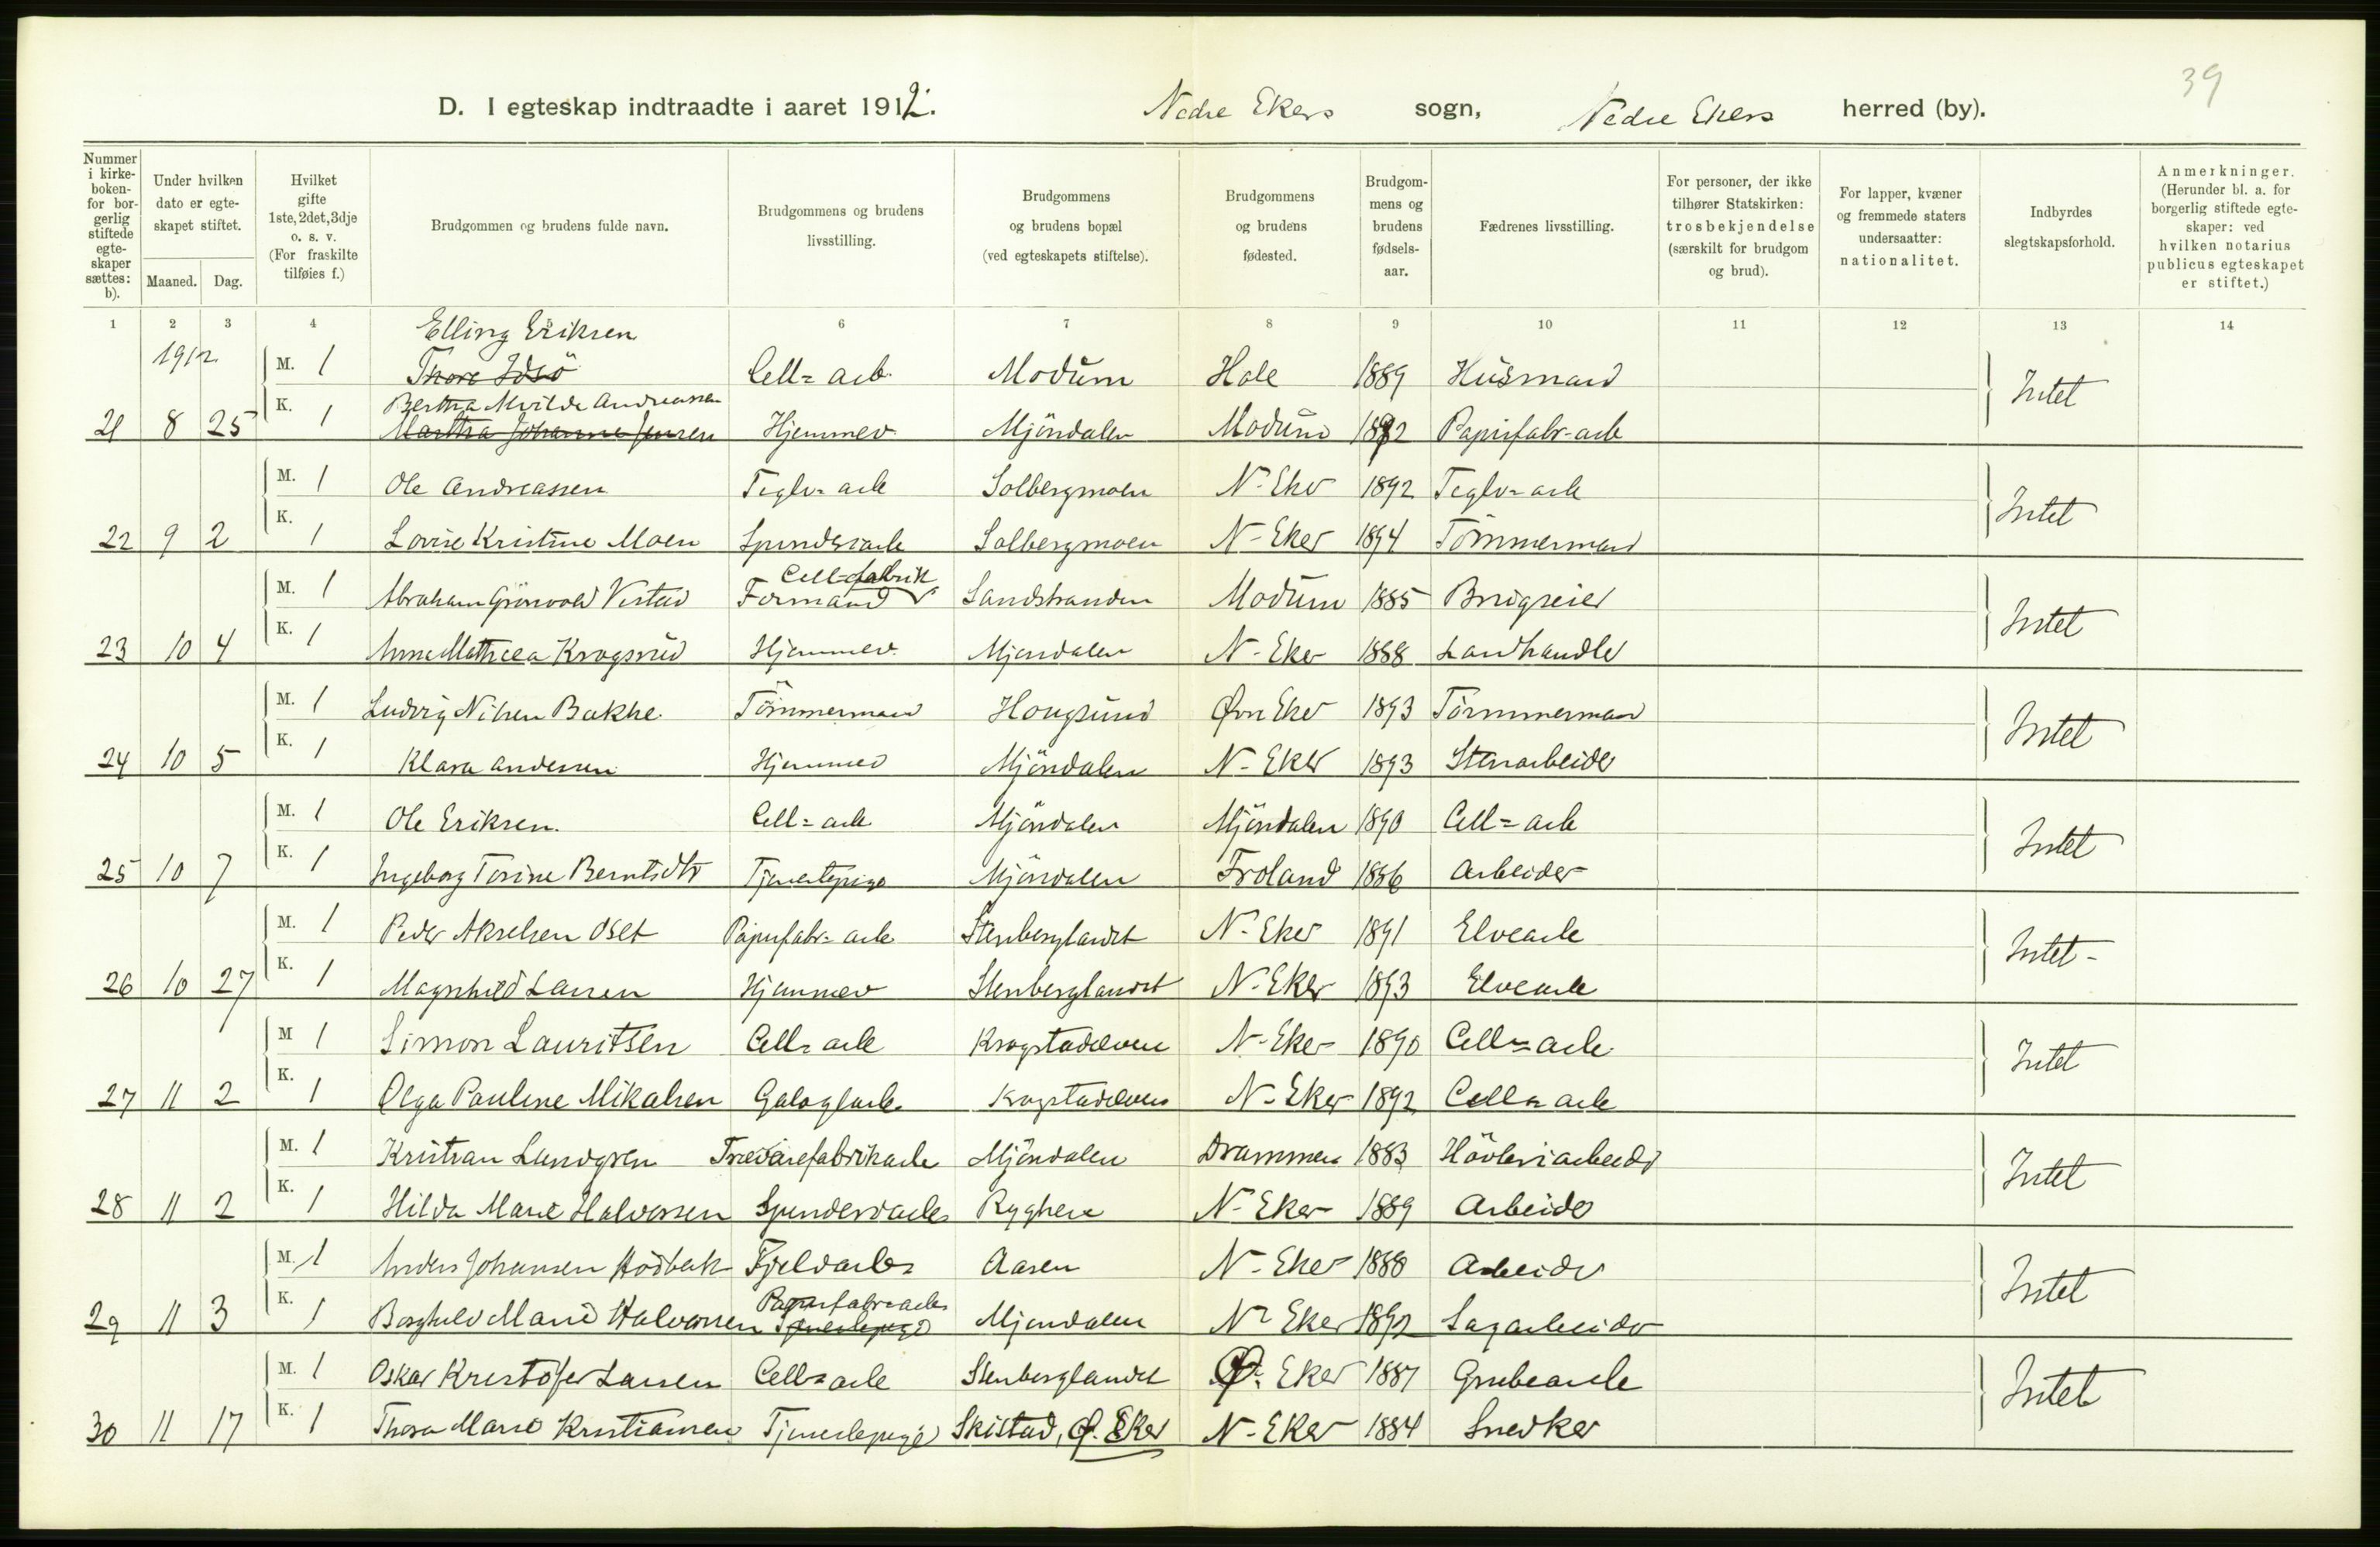 39
D. I egteskap indtraadte i aaret 1912. Nedre Ekers sogn, Nedre Ekers herred (by).
Nummer i kirkeboken- for borgerlig stiftede egteskaper sættes: b).
Under hvilken dato er egteskapet stiftet.
Maaned. Dag.
Hvilket gifte 1ste, 2det, 3dje o. s. v. (For fraskilte tilføies f.)
Brudgommen og brudens fulde navn.
Brudgommens og brudens livsstilling.
Brudgommens og brudens bopæl (ved egteskapets stiftelse).
Brudgommens og brudens fødested.
Brudgommens og brudens fødselsaar.
Fædrenes livsstilling.
For personer, der ikke tilhører Statskirken: trosbekjendelse (særskilt for brudgom og brud).
For lapper, kvæner og fremmede staters undersaatter: nationalitet.
Indbyrdes slegtskapsforhold.
Anmerkninger. (Herunder bl. a. for borgerlig stiftede egteskaper: ved hvilken notarius publicus egteskapet er stiftet.)
1 2 3 4 5 6 7 8 9 10 11 12 13 14
Elling Eriksen
1912 M. 1 Thore Idsö Cell= arb. Modum Hole 1889 Husmand Intet
Bertha Alvilde Andreassen
21 8 25 K. 1 Martha Johanne Jensen Hjemmev Mjöndalen Modum 1892 Papirfabr-arb
M. 1 Ole Andreassen Teglv= arb Solbergmoen N-Eker 1892 Teglv=arb Intet
22 9 2 K. 1 Lovise Kristine Moen Spinderiarb Solbergmoen N-Eker 1894 Tömmermand
Cell=fabrik
M. 1 Abraham Grönvold Vestad Formand Sandstranden Modum 1885 Brugseier Intet
23 10 4 K. 1 Anna Mathilda Krogsrud Hjemmev. Mjöndalen N-Eker 1888 Landhandler
M. 1 Ludvig Nilsen Bakke Tömmermand Hougsund Øvre Eker 1893 Tömmermand Intet
24 10 5 K. 1 Klara Andersen Hjemmev Mjöndalen N-Eker 1893 Stenarbeider
M. 1 Ole Eriksen. Cell=arb Mjöndalen Mjöndalen 1890 Cell=arb Intet
25 10 7 K. 1 Ingeborg Torine Berntsdtr Tjenestepige Mjöndalen Froland 1886 Arbeider
M. 1 Peder Akselsen Oset Papirfabr=arb Stenberglandet N-Eker 1891 Elvearb Intet-
26 10 27 K. 1 Magnhild Larsen Hjemmev Stenberglandet N-Eker 1893 Elvearb
M 1 Simon Lauritsen Cell=arb Krogstadelven N-Eker 1890 Cell=arb Intet
27 11 2 K. 1 Olga Pauline Mikalsen Krogstadelven N-Eker 1892 Cell=arb
M. 1 Kristian Lundgren Trævarefabrikarb Mjöndalen Drammen 1883 Hövleriarbeider Intet
28 11 2 K. 1 Hilda Marie Halvorsen Spinderiarb Ryghere N-Eker 1889 Arbeider
M. 1 Anders Johansen Hodbak Fjeldarb= Aasen N-Eker 1888 Arbeider Intet
Papirfabr=arb
29 11 3 K. 1 Borghild Marie Halvorsen Tjenestepige Mjöndalen N-Eker 1892 Sagarbeider
M. 1 Oskar Kristofer Larsen Cell=arb Stenberglandet Ø. Eker 1887 Grubearb Intet
30 11 17 K. 1 Thora Marie Kristiansen Tjenestepige Skistad, Ø. Eker N-Eker 1884 Snedker